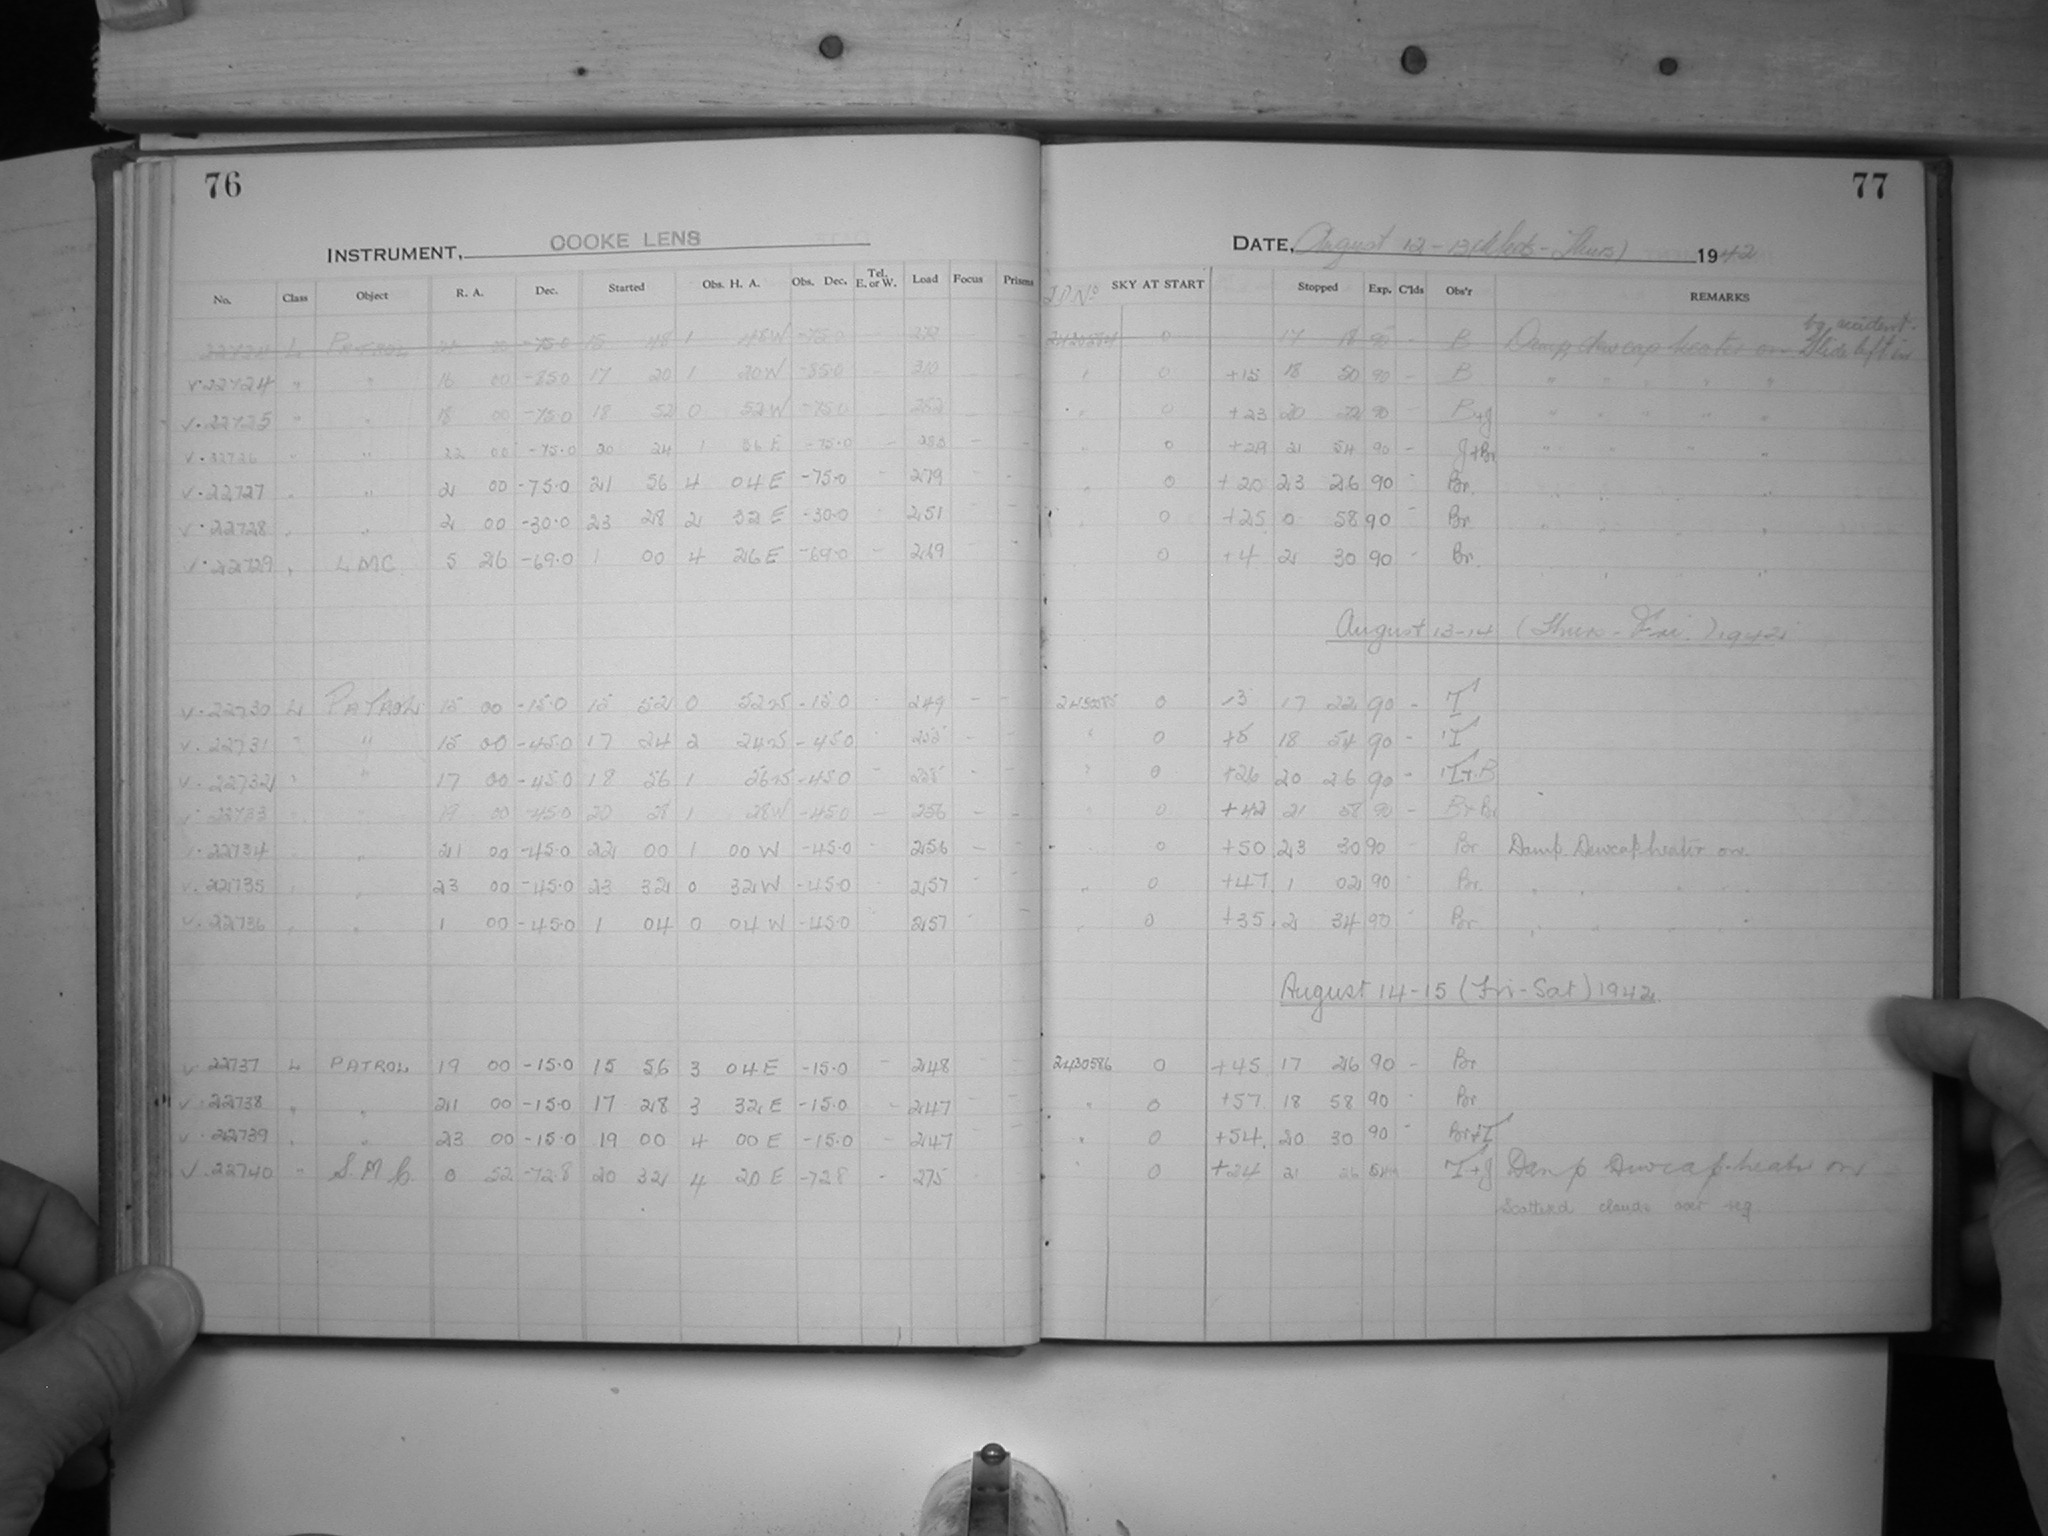 76
77
INSTRUMENT, COOKE LENS
DATE, August 12-13 (Weds-Thurs) 1942
No. Class Object R. A. Dec. Started Obs. H. A. Obs. Dec. Tel. E. or W. Load Focus Prisms J.D. No. SKY AT START Stopped Exp. C'lds Obs'r REMARKS
22724 L PATROL 00 -75.0 15 48 1 48 W -75.0 0 17 18 90 - B Damp dewcap heater on Slide left in by accident.
v. 22724 " " 16 00 -85.0 17 20 1 20 W -85.0 " 0 +15 18 50 90 - B " " " "
v. 22725 " " 18 00 -75.0 18 52 0 52 W -75.0 252 " 0 +23 20 22 90 - B+J " " " " "
v. 22726 " " 22 00 -75.0 20 24 1 36 E -75.0 - - - " 0 +29 21 54 90 - J+Br " " " " "
v. 22727 " " 2 00 -75.0 21 56 4 04 E -75.0 - 279 - " 0 +20 23 26 90 - Br. " " " "
v. 22728 " " 2 00 -30.0 23 28 2 32 E -30.0 - 251 - " 0 +25 0 58 90 - Br. " " "
v. 22729 " LMC 5 26 -69.0 1 00 4 26 E -69.0 - 269 - 0 +4 2 30 90 - Br. " " "
August 13-14 (Thurs-Fri.) 1942
v. 22730 L PATROL 15 00 -15.0 15 52 0 52 W -15.0 - 249 - - 0 17 22 90 - T
v. 22731 " " 15 00 -45.0 17 24 2 24 W -45.0 - 255 - - " 0 18 54 90 - T
v. 22732 " " 17 00 -45.0 18 56 1 56 W -45.0 - - - " 0 +26 20 26 90 - T+B
v. 22733 " " 19 00 -45.0 20 28 1 28 W -45.0 - 256 - - " 0 +42 21 58 90 - B+Br
v. 22734 " " 21 00 -45.0 22 00 1 00 W -45.0 - 256 - - " 0 +50 23 30 90 Br Damp. Dewcap heater on.
v. 22735 " " 23 00 -45.0 23 32 0 32 W -45.0 - 257 - - " 0 +47 1 02 90 - Br. " " " "
v. 22736 " " 1 00 -45.0 1 04 0 04 W -45.0 - 257 - - " 0 +35 2 34 90 - Br. " " " "
August 14-15 (Fri-Sat) 1942.
v. 22737 L PATROL 19 00 -15.0 15 56 3 04 E -15.0 - 248 - - 2430586 0 +45 17 26 90 - Br
v. 22738 " " 21 00 -15.0 17 28 3 32 E -15.0 - 247 - - " 0 +57 18 58 90 - Br
v. 22739 " " 23 00 -15.0 19 00 4 00 E -15.0 - 247 - - " 0 +54 20 30 90 - Br+T
v. 22740 " S.M.C. 0 52 -72.8 20 32 4 20 E -72.8 - 275 " 0 +24 21 26 54m T+J Damp Dewcap heater on
Scattered clouds over reg.